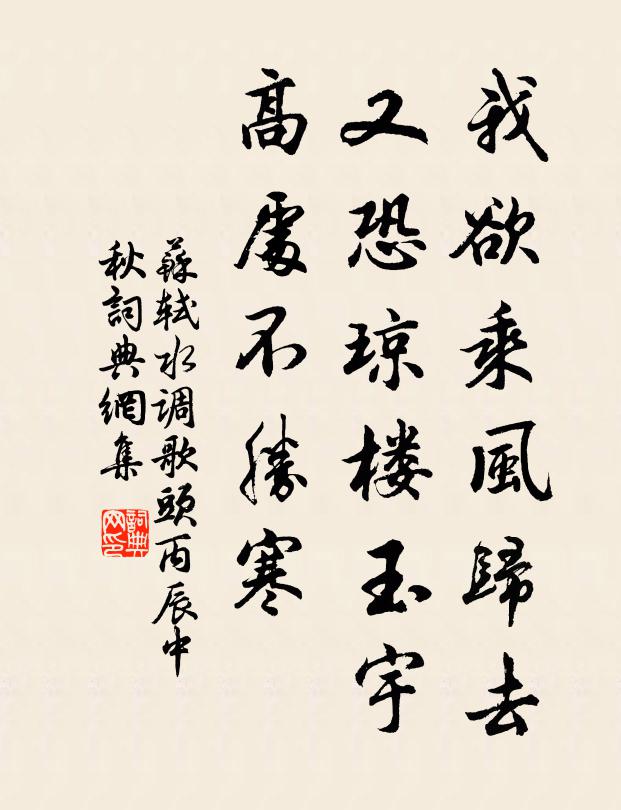 我欲乘風歸去
又恐琼楼玉宇
高處不勝寒
蘇軾水调歌頭丙辰中
秋詞典網集
詞典
网印